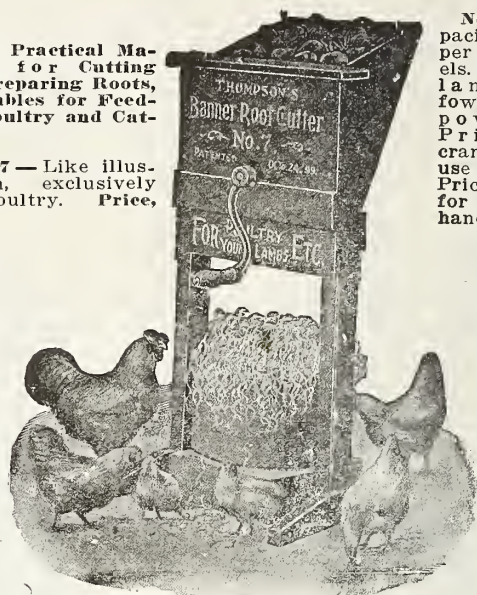 Practical Ma-
for Cutting
reparing Roots,
ables for Feed-
oultry and Cat-
7 — Like illus-
n, exclusively
oultry. Price,
THOMPSON'S
Banner Root Cutter
No. 7
PATENTED OCT. 24. 99.
FOR POULTRY
YOUR LAMBS, ETC.
N
paci
per
els.
lan
fow
pov
Pri
cran
use
Pric
for
han